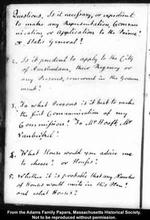 Questions. Is it necessary, or expedient
to make any Representation, Communi-
cation or Application to the Prince
or States General?
2. Is it prudent to apply to the City
of Amsterdam, their Regency or
any Persons, concerned in the Govern
ment?
3. To what Persons is it best to make
the first Communication of my
Commission? To Mr Hooft, Mr
Vanberckel?
4. What House would you advise me
to choose? or Houses?
5. Whether it is probable that any Number
of Houses would unite in this Plan?
and what Houses?
From the Adams Family Papers, Massachusetts Historical Society.
Not to be reproduced without permission.